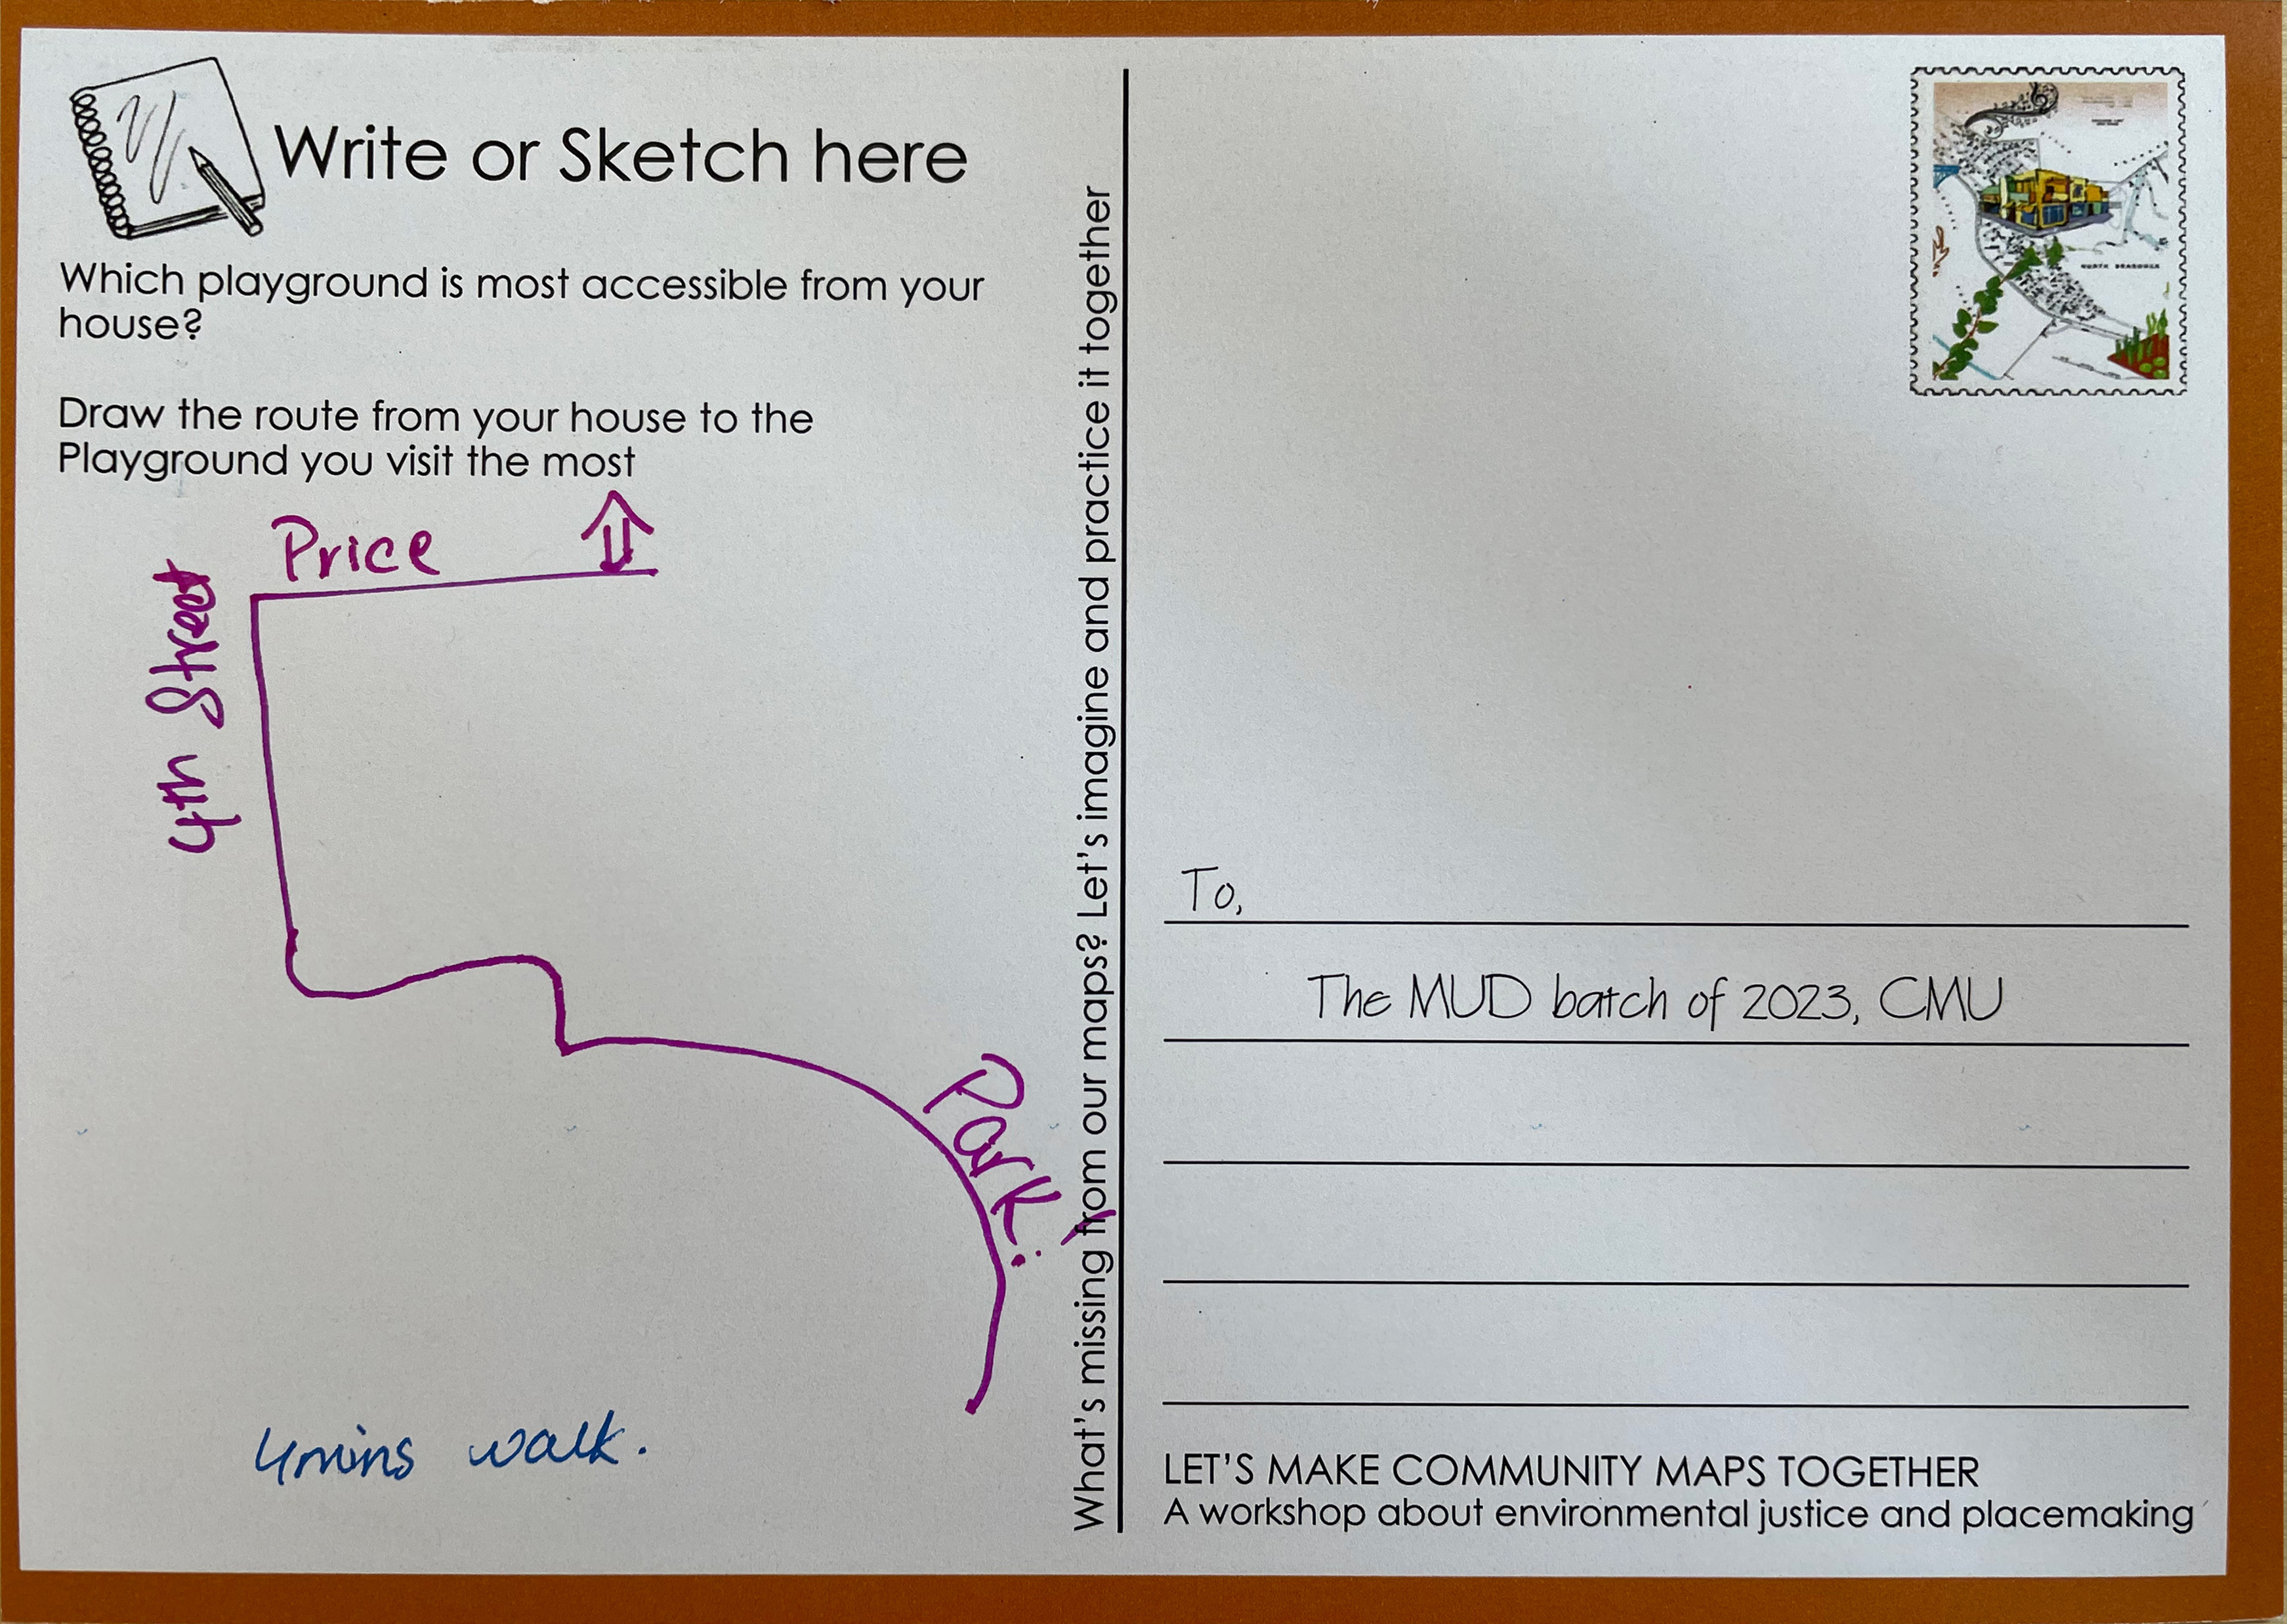 Write or Sketch here
Which playground is most accessible from your
house?
Draw the route from your house to the
Playground you visit the most
Price
4th Street
Park!
4mins walk.
What's missing from our maps? Let's imagine and practice it together
NORTH BRADDOCK
To,
The MUD batch of 2023, CMU
LET'S MAKE COMMUNITY MAPS TOGETHER
A workshop about environmental justice and placemaking